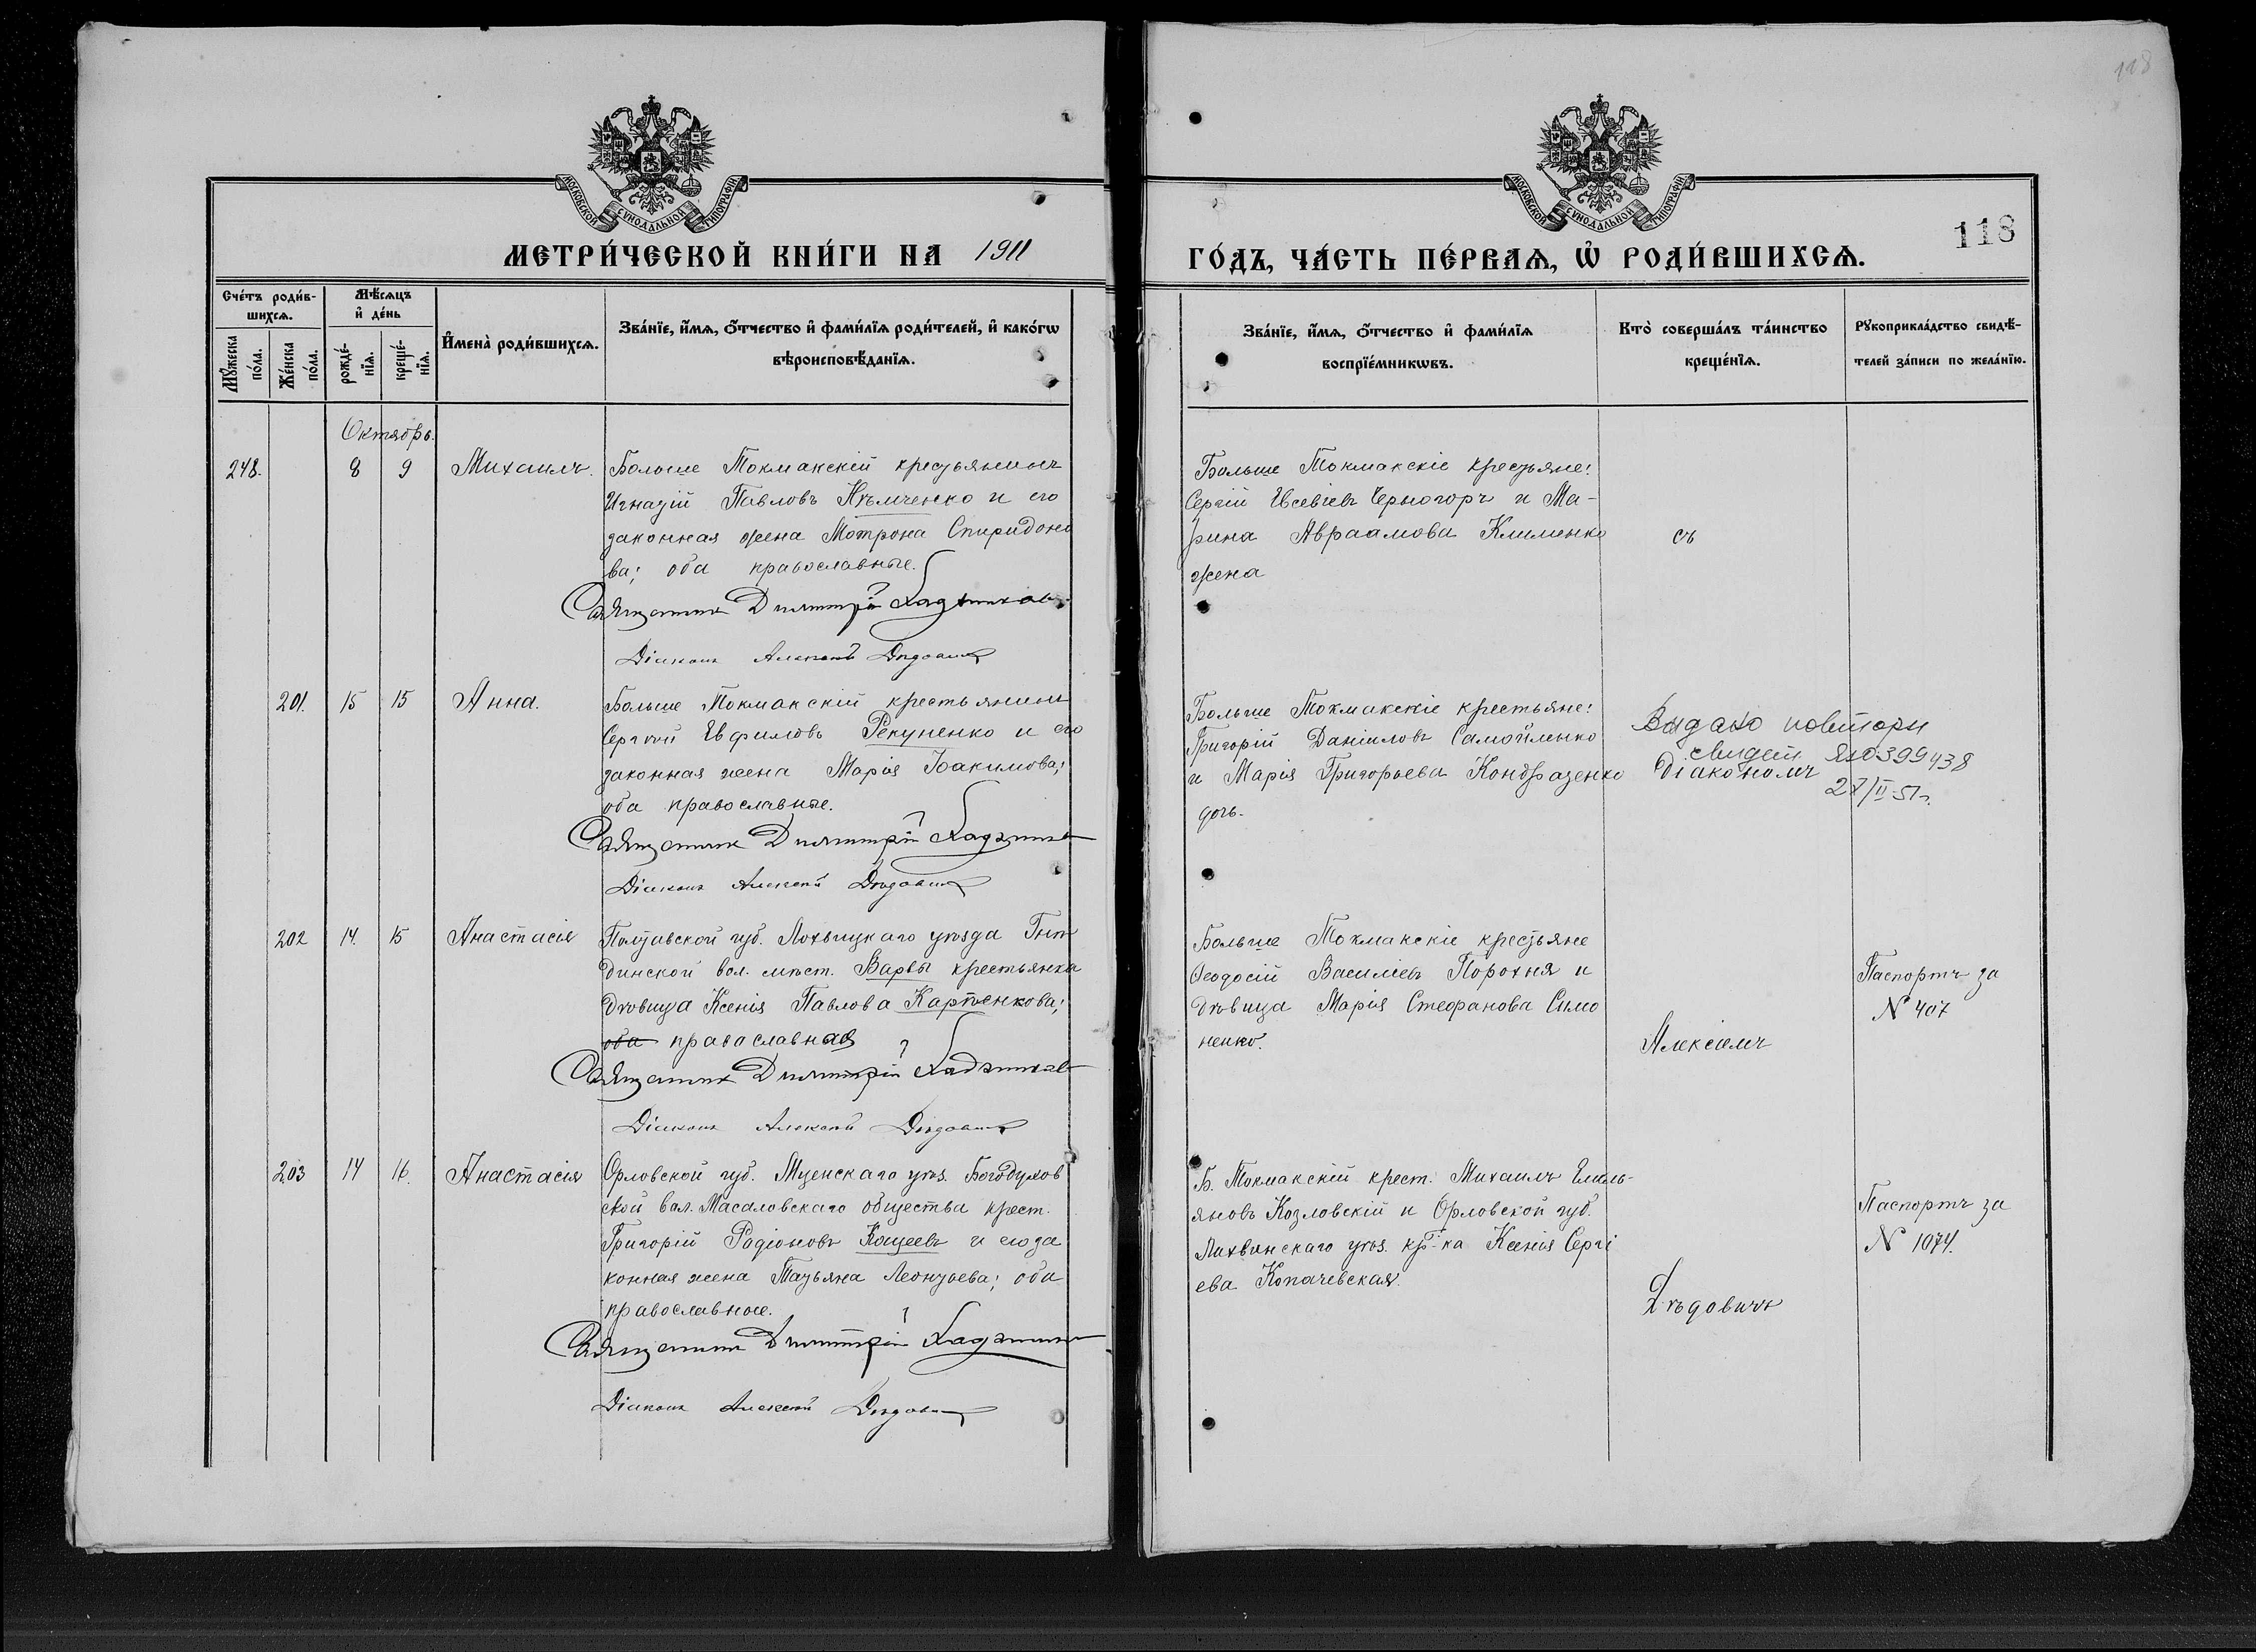 118
МОСКОВСКОЙ СѴНОДАЛЬНОЙ ТИПОГРАФІИ
МЕТРИ́ЧЕСКОЙ КНИ́ГИ НА 1911
Сче́тъ роди́в-
шихсѧ.
Мꙋ́жеска
по́ла.
Же́нска
по́ла.
Мѣ́сѧцъ
и҆ де́нь
рожде́-
нїѧ.
креще́-
нїѧ.
И҆мена̀ роди́вшихсѧ.
Зва́нїе, и҆́мѧ, ѻ҆́тчество и҆ фами́лїѧ роди́телей, и҆ како́гѡ
вѣроисповѣ́данїѧ.
Октябрь.
248. 8 9 Михаилъ.
Больше Токмакскій крестьянинъ
Игнатій Павловъ Нѣмченко и его
законная жена Мотрона Спиридоно
ва; оба православные.
Священникъ Димитрій Хаджиновъ
Діаконъ Алексѣй Дѣдовичъ
201. 15 15 Анна.
Больше Токмакскій крестьянинъ
Сергѣй Евфимовъ Репуненко и его
законная жена Марія Іоакимова;
оба православные.
Священникъ Димитрій Хаджиновъ
Діаконъ Алексѣй Дѣдовичъ
202 14. 15 Анастасія
Полтавской губ. Лохвицкаго уѣзда Гнѣ
динской вол. мѣст. Варвы крестьянка
дѣвица Ксенія Павлова Карпенкова;
оба православная
Священникъ Димитрій Хаджиновъ
Діаконъ Алексѣй Дѣдовичъ
203 14 16. Анастасія
Орловской губ. Мценскаго уѣз. Богодухов
ской вол. Масаловскаго общества крест.
Григорій Радіоновъ Кощеевъ и его за
конная жена Татьяна Леонтьева; оба
православные.
Священникъ Димитрій Хаджиновъ
Діаконъ Алексѣй Дѣдовичъ
118
МОСКОВСКОЙ СѴНОДАЛЬНОЙ ТИПОГРАФІИ
ГО́ДЪ, ЧА́СТЬ ПЕ́РВАѦ, Ѡ҆ РОДИ́ВШИХСѦ.
Зва́нїе, и҆́мѧ, ѻ҆́тчество и҆ фами́лїѧ
воспрїе́мникѡвъ.
Кто̀ соверша́лъ та́инство
креще́нїѧ.
Рꙋкоприкла́дство свидѣ́-
телей за́писи по жела́нїю.
Больше Токмакскіе крестьяне:
Сергій Евсевіевъ Черногоръ и Ма-
рина Авраамова Клименко
жена
съ
Больше Токмакскіе крестьяне:
Григорій Даніиловъ Самойленко
и Марія Григорьева Кондраценко
дочь.
Выдано повторн
свидет ЯЮ399438
27/II-51г.
Діакономъ
Больше Токмакскіе крестьяне
Ѳеодосій Василіевъ Порохня и
дѣвица Марія Стефанова Симо
ненко.
Алексіемъ
Паспортъ за
N 407
Б. Токмакскій крест. Михаилъ Емель-
яновъ Козловскій и Орловской губ.
Лихвинскаго уѣз. кр-ка Ксенія Сергі
ева Копачевская.
Дѣдовичъ
Паспортъ за
N 1074.